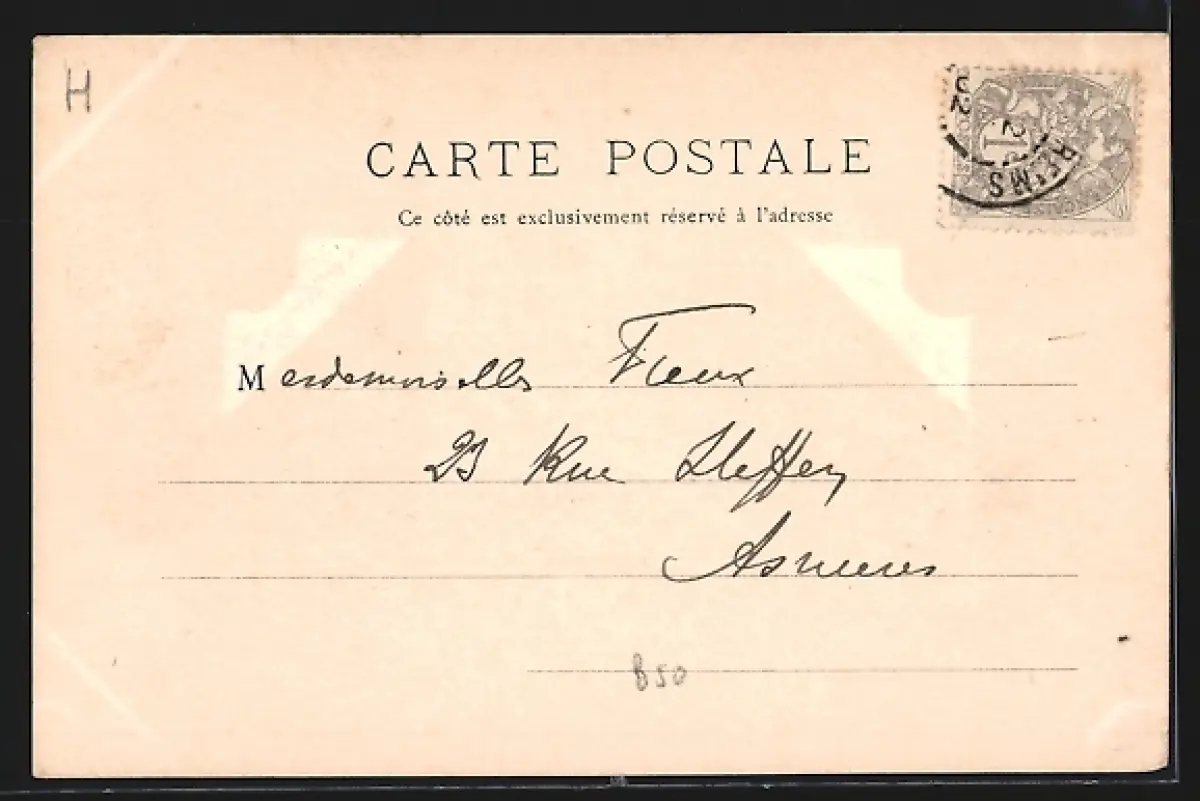 H
CARTE POSTALE
Ce côté est exclusivement réservé à l'adresse
02
2
1
REIMS
Mesdemoiselles
23 Rue Steffen
Asnieres
850